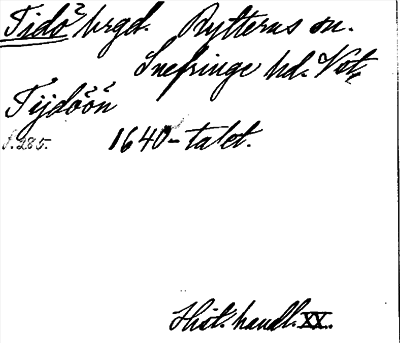 Tidö² hrgd. Rytterns sn.
Snefringe hd. Vstm.
Tijdöön
s. 285. 1640-talet.
Hist. handl. XX.